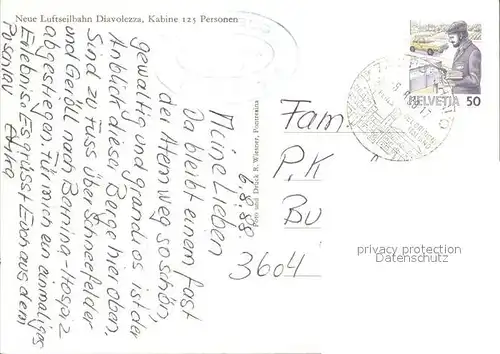 Neue Luftseilbahn Diavolezza, Kabine 123 Personen
6.8.88.
Meine Lieben
Da bleibt einem fast
der Atem weg so schön,
gewaltig und grandios ist der
Anblick dieser Berge hier oben.
Sind zu Fuss über Schneefelder
und Geröll nach Bernina-Hospiz
abgestiegen. Für mich ein einmaliges
Erlebnis. Es grüsst Euch aus dem
Puschlav
Foto und Druck R. Wiesner, Pontresina
HELVETIA 50
Fam
P.K
Bu
3604
privacy protection
Datenschutz